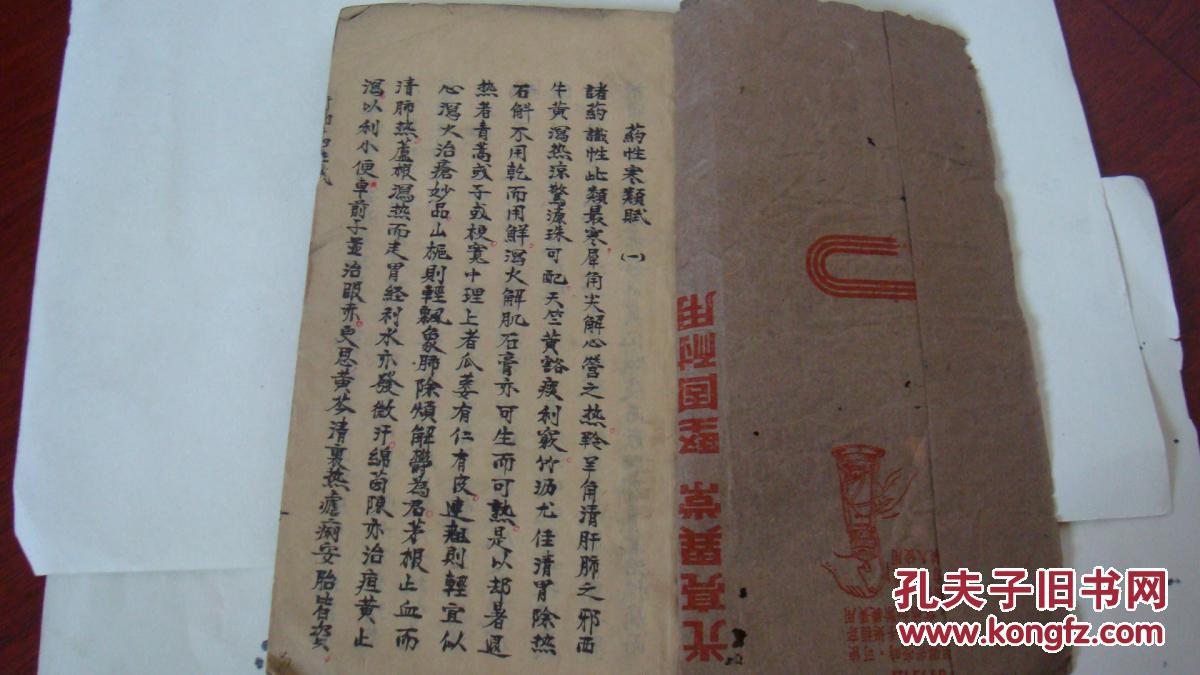 藥性寒類賦 (一)
諸药讖性此類最寒犀角尖解心营之热羚羊角清肝肺之邪西
牛黄瀉热凉驚濂珠可配天竺黄豁痰利竅竹沥尤佳清胃除热
石斛不用乾而用鮮瀉火解肌石膏亦可生而可熟是以却暑還
热者青蒿或子或梗寬中理上者瓜蒌有仁有皮連翹則輕宜似
心瀉火治瘡妙品山栀則輕飄象肺除煩解欝為君茅根止血而
清肺热蘆根瀉热而走胃経利水亦發微汗綿茵陳亦治疸黄止
瀉以利小便車前子並治眼赤更思黄芩清裏热瘧痢安胎皆資
光亮異常 堅固耐用
孔夫子旧书网
www.kongfz.com